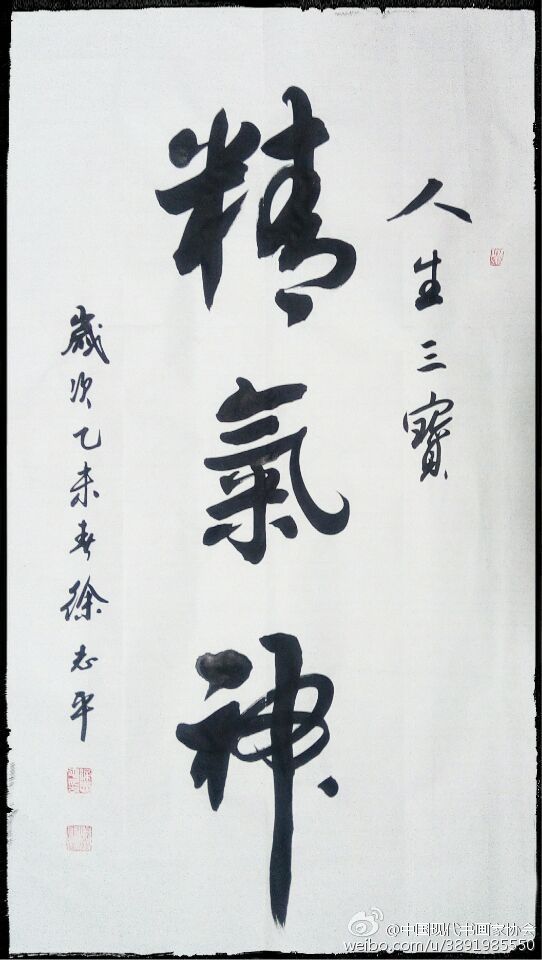 人生三寶
精氣神
歲次乙未春徐志平
@中国现代书画家协会
weibo.com/u/3891985550